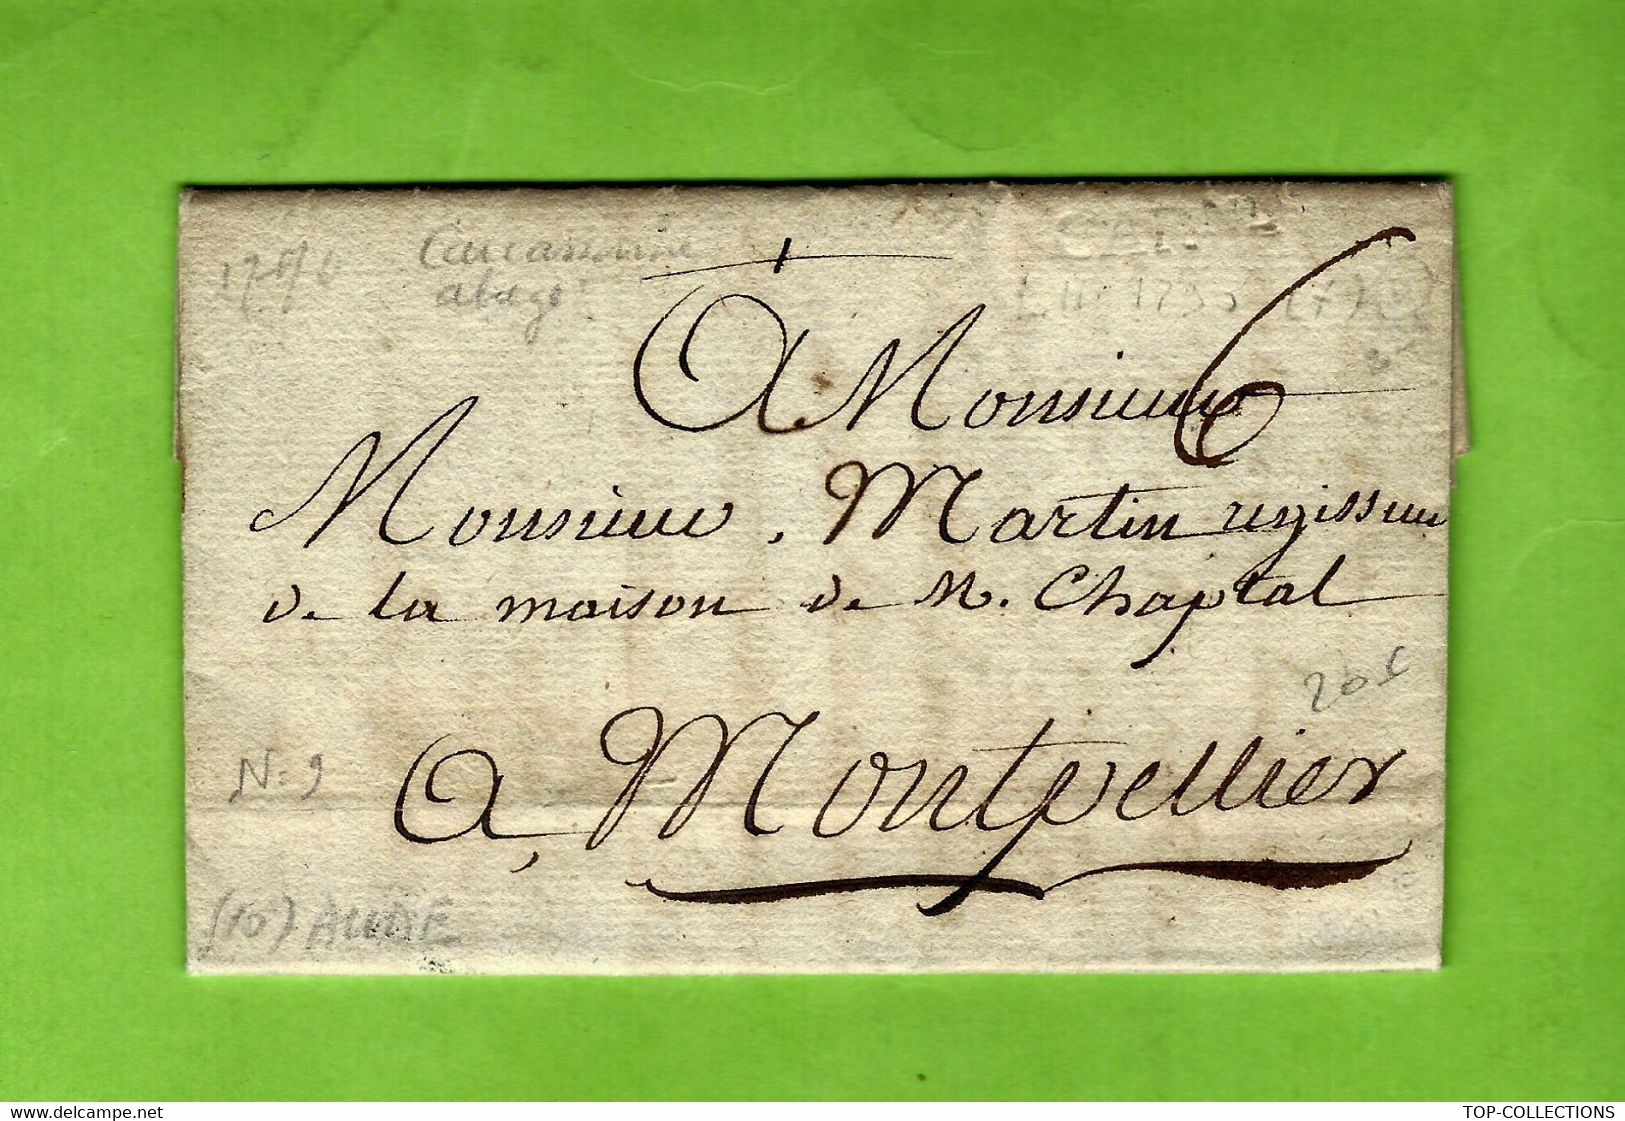 Carcassonne
CAR
6
A Monsieur
Monsieur, Martin regisseur
de la maison de M. Chaptal
20f
N: 9
a, Montpellier
(10) AUDE
delcampe.net
TOP-COLLECTIONS